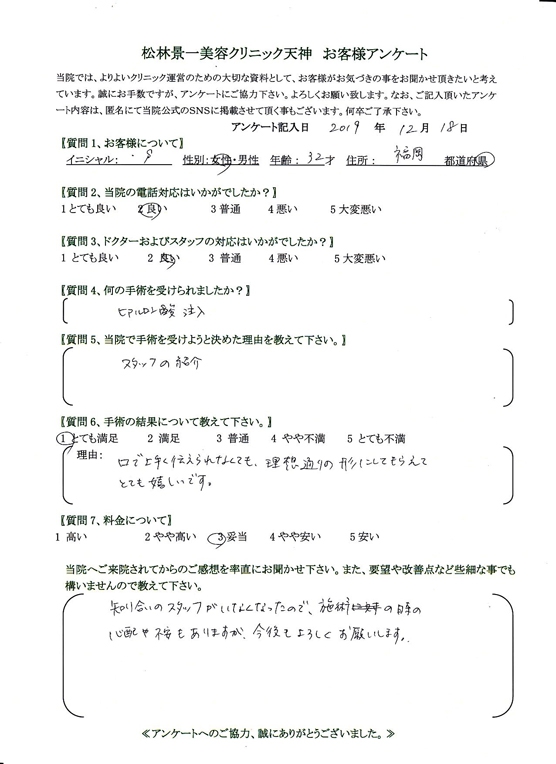 松林景一美容クリニック天神　お客様アンケート
当院では、よりよいクリニック運営のための大切な資料として、お客様がお気づきの事をお聞かせ頂きたいと考え
ています。誠にお手数ですが、アンケートにご協力下さい。よろしくお願い致します。なお、ご記入頂いたアンケ
ート内容は、匿名にて当院公式のSNSに掲載させて頂く事もございます。何卒ご了承下さい。
アンケート記入日　2019　年　12月　18日
〖質問1、お客様について〗
イニシャル：　性別：女性・男性　年齢：32才　住所：　福岡　都道府県
〖質問2、当院の電話対応はいかがでしたか？〗
1とても良い　2良い　3普通　4悪い　5大変悪い
〖質問3、ドクターおよびスタッフの対応はいかがでしたか？〗
1 とても良い　2 良い　3 普通　4悪い　5大変悪い
〖質問4、何の手術を受けられましたか？〗
ヒアルロン酸 注入
〖質問5、当院で手術を受けようと決めた理由を教えて下さい。〗
スタッフの紹介
〖質問6、手術の結果について教えて下さい。〗
1とても満足　2 満足　3 普通　4 やや不満　5 とても不満
理由：　口で上手く伝えられなくても、理想通りの形にしてもらえて
とても嬉しいです。
〖質問7、料金について〗
1 高い　2やや高い　3妥当　4やや安い　5安い
当院へご来院されてからのご感想を率直にお聞かせ下さい。また、要望や改善点など些細な事でも
構いませんので教えて下さい。
知り合いのスタッフがいなくなったので、施術の時の
心配や不安もありますが、今後もよろしくお願いします。
≪アンケートへのご協力、誠にありがとうございました。≫